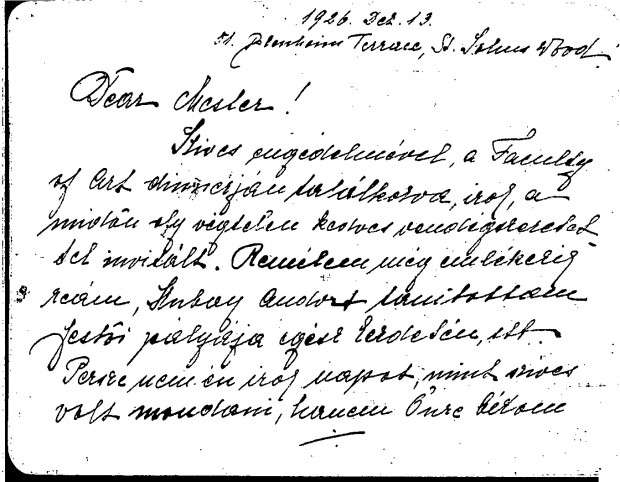 1926. Dec. 13.
51. Blenheim Terrace, St. Johns Wood.
Dear Mester!
Szives engedelmével, a Faculty
of Art dinnerján találkozva, a
midőn oly végtelen kedves vendégszeretet
tel invitált. Remélem még emlékezik
reám, Andort tanitottam
festői pályája egész kezdetén, itt.
Persze nem én napot, mint szives
volt mondani, hanem Önre bízom